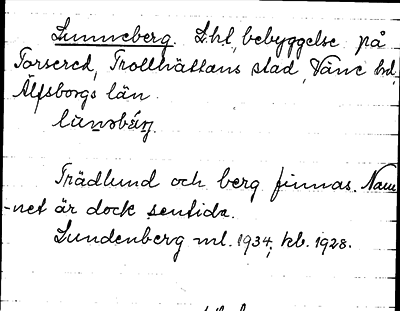 Lunneberg. L.hl, bebyggelse på
Torsered, Trollhättans stad, Väne hd,
Älfsborgs län.
Trädlund och berg finnas. Nam-
-net är dock sentida.
Lundenberg ml. 1934; kb. 1928.